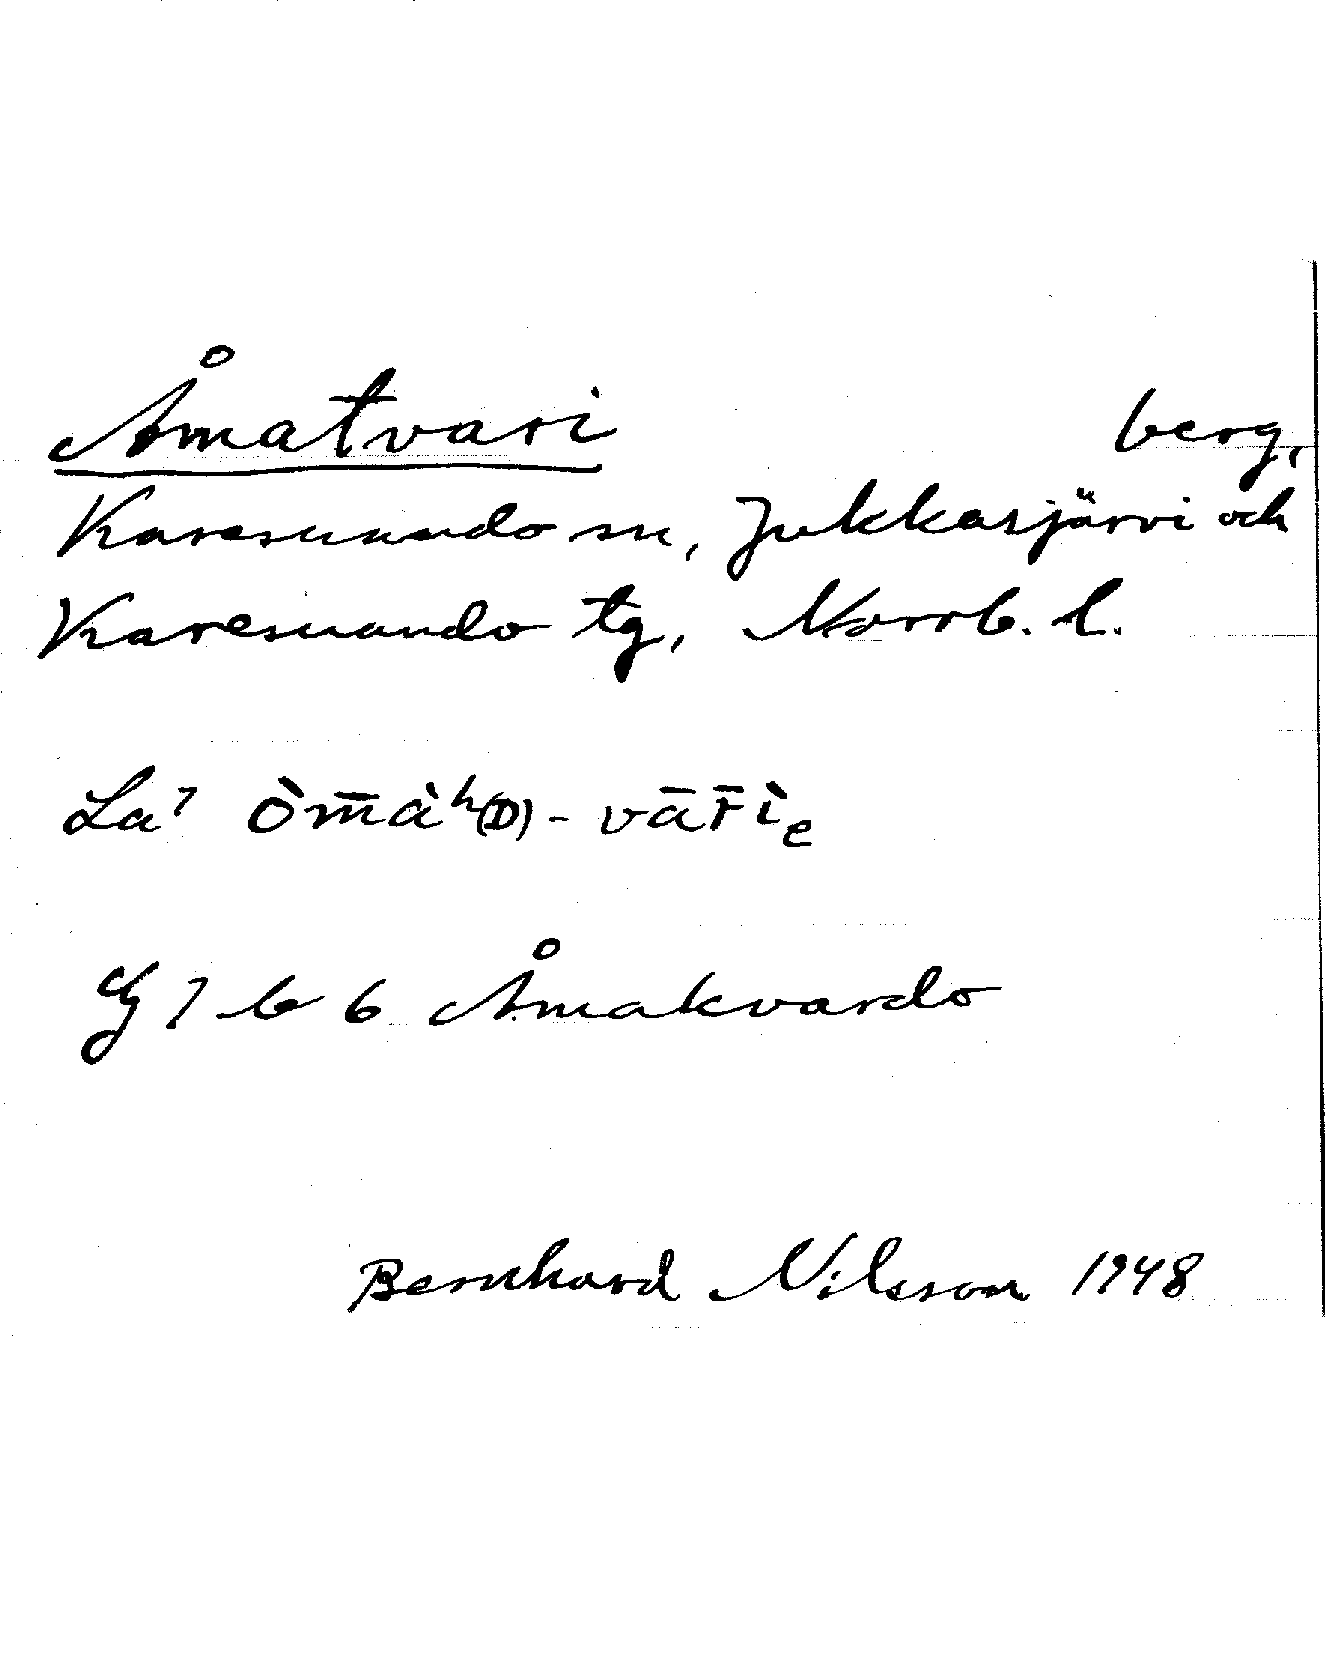 Åmatvari berg,
Karesuando sn, Jukkasjärvi och
Karesuando tg, Norrb. l.
La⁷ òm̄àʰ(D)- vār̄ìₑ
G 7 b 6 Åmakvardo
Bernhard Nilsson 1948